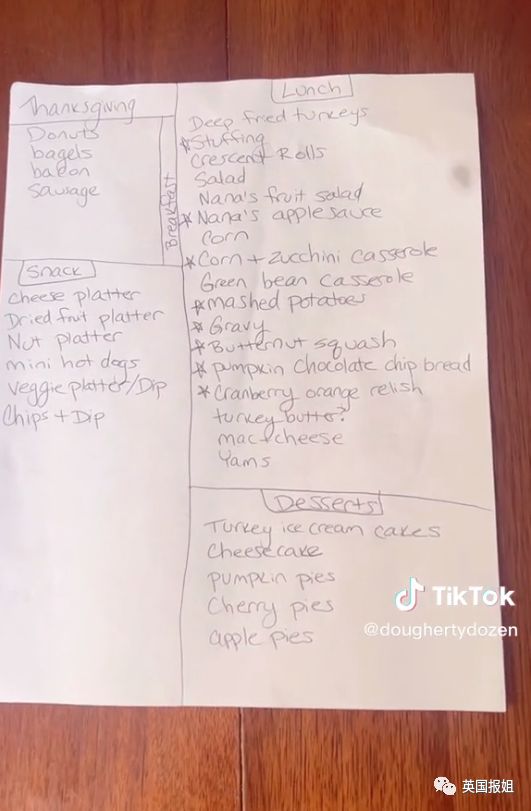 Thanksgiving
Donuts
bagels
bacon
Sausage
Breakfast
Snack
Cheese platter
Dried fruit platter
Nut platter
mini hot dogs
Veggie platter/Dip
Chips + Dip
Lunch
Deep fried turkeys
*Stuffing
Crescent Rolls
Salad
Nana's fruit salad
*Nana's applesauce
Corn
*Corn + Zucchini casserole
Green bean casserole
*mashed potatoes
*Gravy
*Butternut squash
*pumpkin chocolate chip bread
*Cranberry orange relish
turkey butter?
mac + cheese
Yams
Desserts
Turkey ice cream cakes
Cheesecake
pumpkin pies
Cherry pies
apple pies
TikTok
@doughertydozen
英国报姐